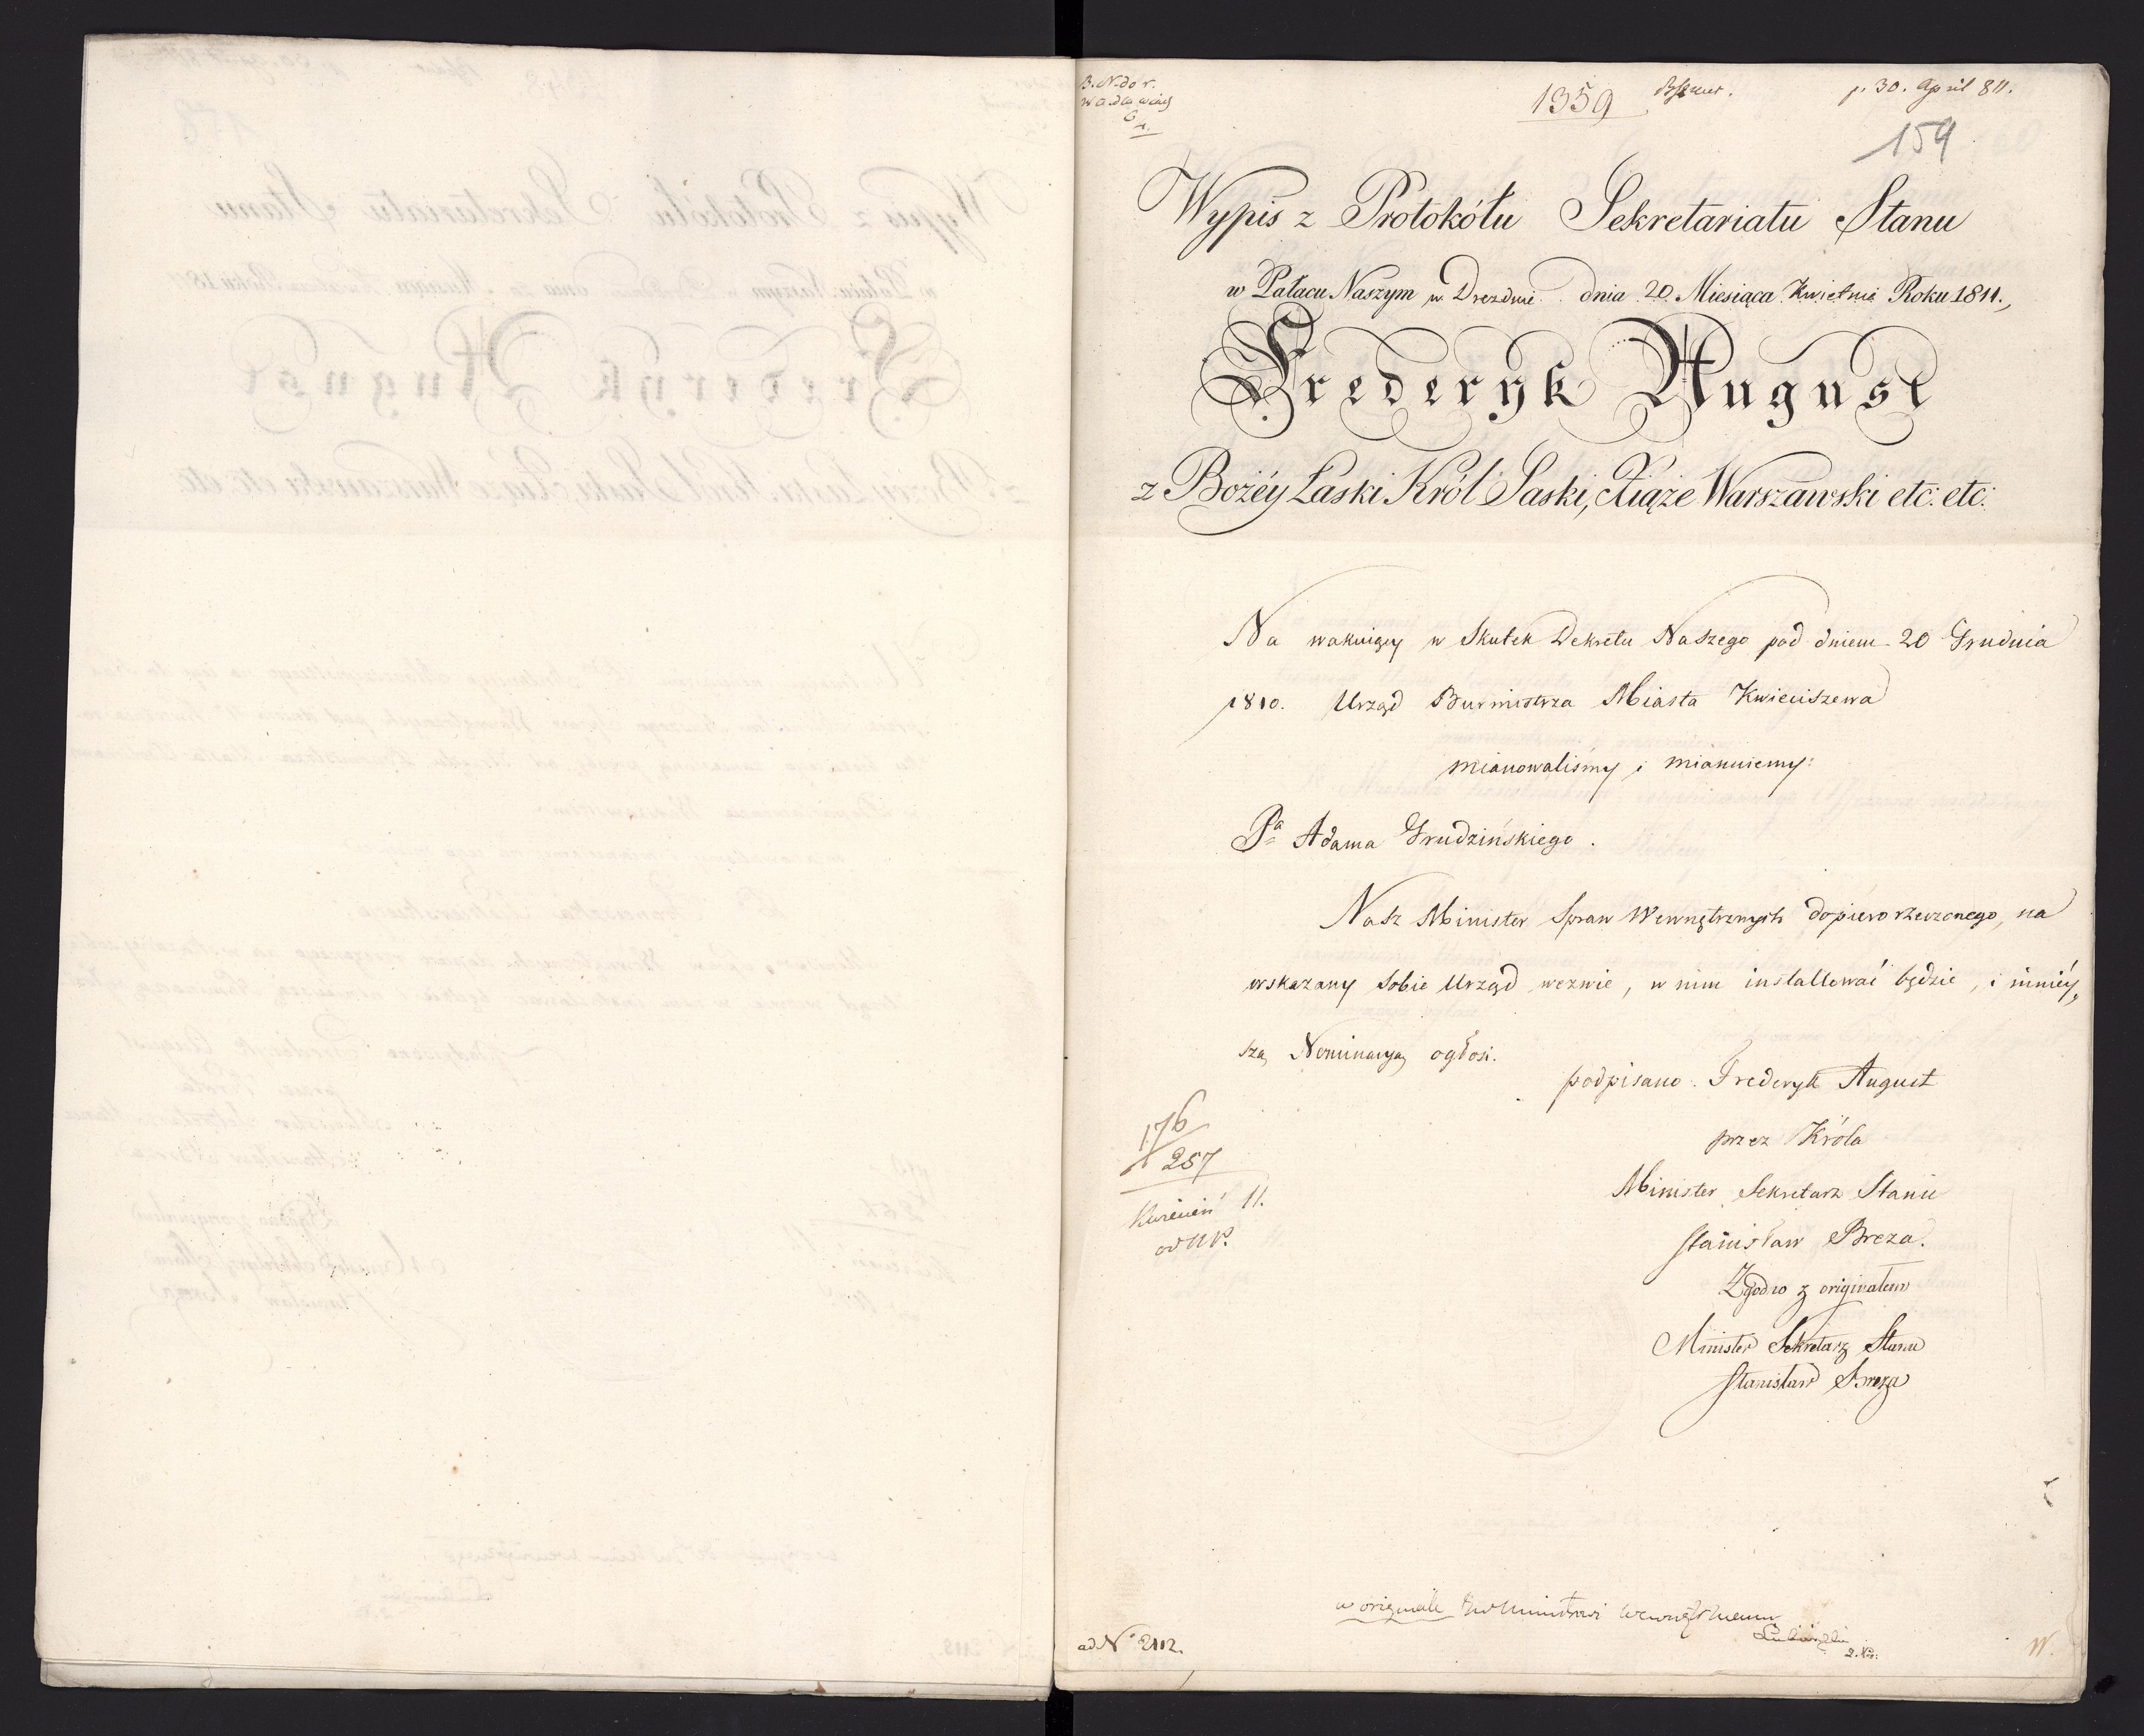 1359
p. 30. April 811.
159
Wypis z Protokółu Sekretariatu Stanu
w Pałacu Naszym w Dreznie dnia 20 Miesiąca Kwietnia Roku 1811.,
Frederyk August
z Bożéy Łaski Król Saski, Xiąże Warszawski etc: etc:
Na wakuiący w Skutek Dekretu Naszego pod dniem 20 Grudnia
1810. Urząd Burmistrza Miasta Kwieciszewa
mianowaliśmy i mianuiemy:
Pa Adama Grudzińskiego.
Nasz Minister Spraw Wewnętrznych dopiero rzeczonego, na
wskazany sobie Urząd wezwie, w nim installować będzie, i niniéy„
szą Nominacyą ogłosi.
podpisano. Frederyk August
przez Króla
Minister Sekretarz Stanu
Stanisław Breza.
Zgodno z originałem
Minister Sekretarz Stanu
Stanisław Breza
176
257
Kwiecień 11.
w originale
ad No 2112.
W.